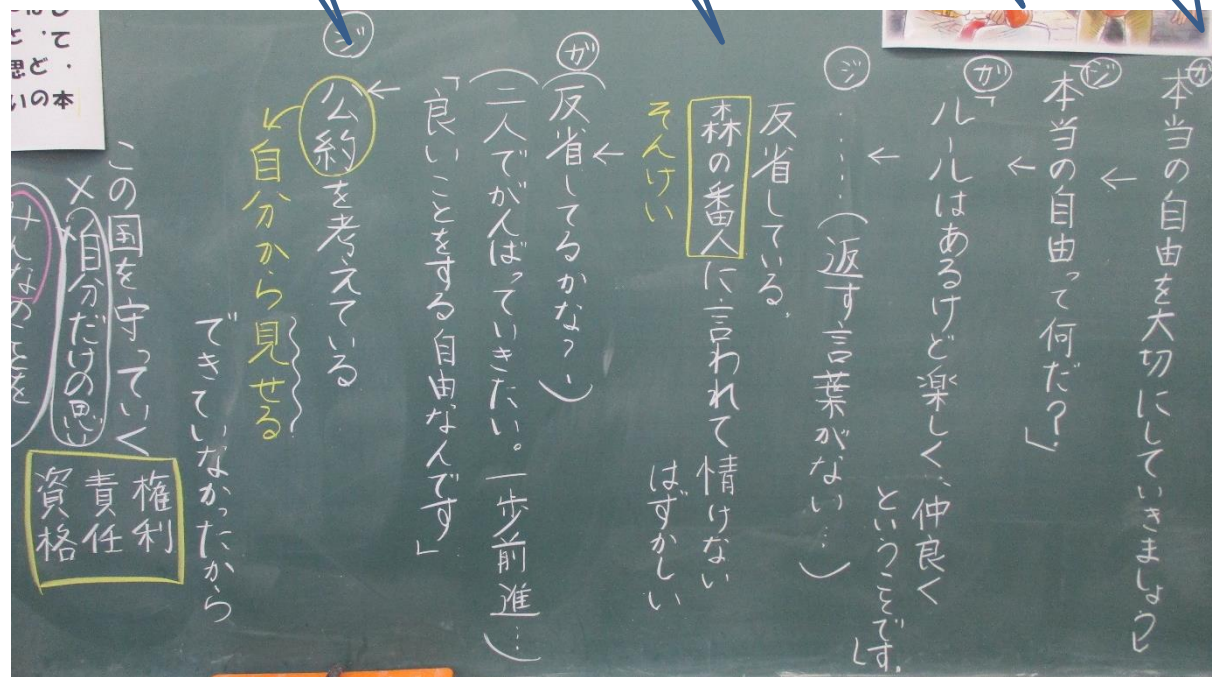 ガ
本当の自由を大切にしていきましょう」
ジ
本当の自由って何だ？」
ガ
「ルールはあるけど楽しく、仲良く
ということです。」
ジ
……（返す言葉がない…）
反省している。
森の番人に言われて 情けない
はずかしい
そんけい
ガ
（反省してるかな？）
（二人でがんばっていきたい。一歩前進…）
「良いことをする自由なんです」
ジ
公約を考えている
自分から見せる
できていなかったから
この国を守っていく
権利
責任
資格
×自分だけの思い
みんなのことを